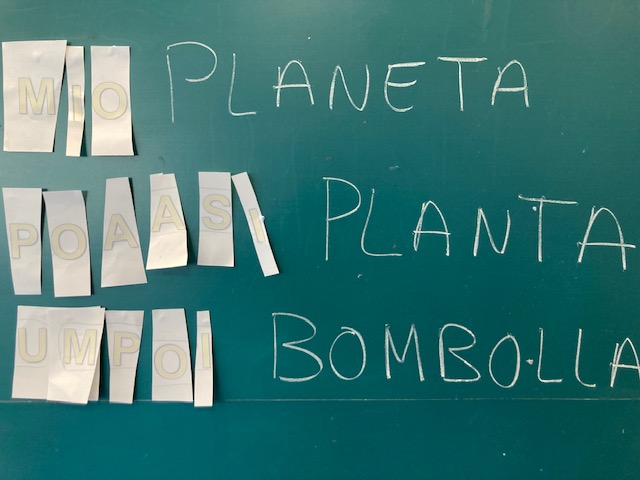 MIO PLANETA
POAASI PLANTA
UMPOI BOMBO·LLA